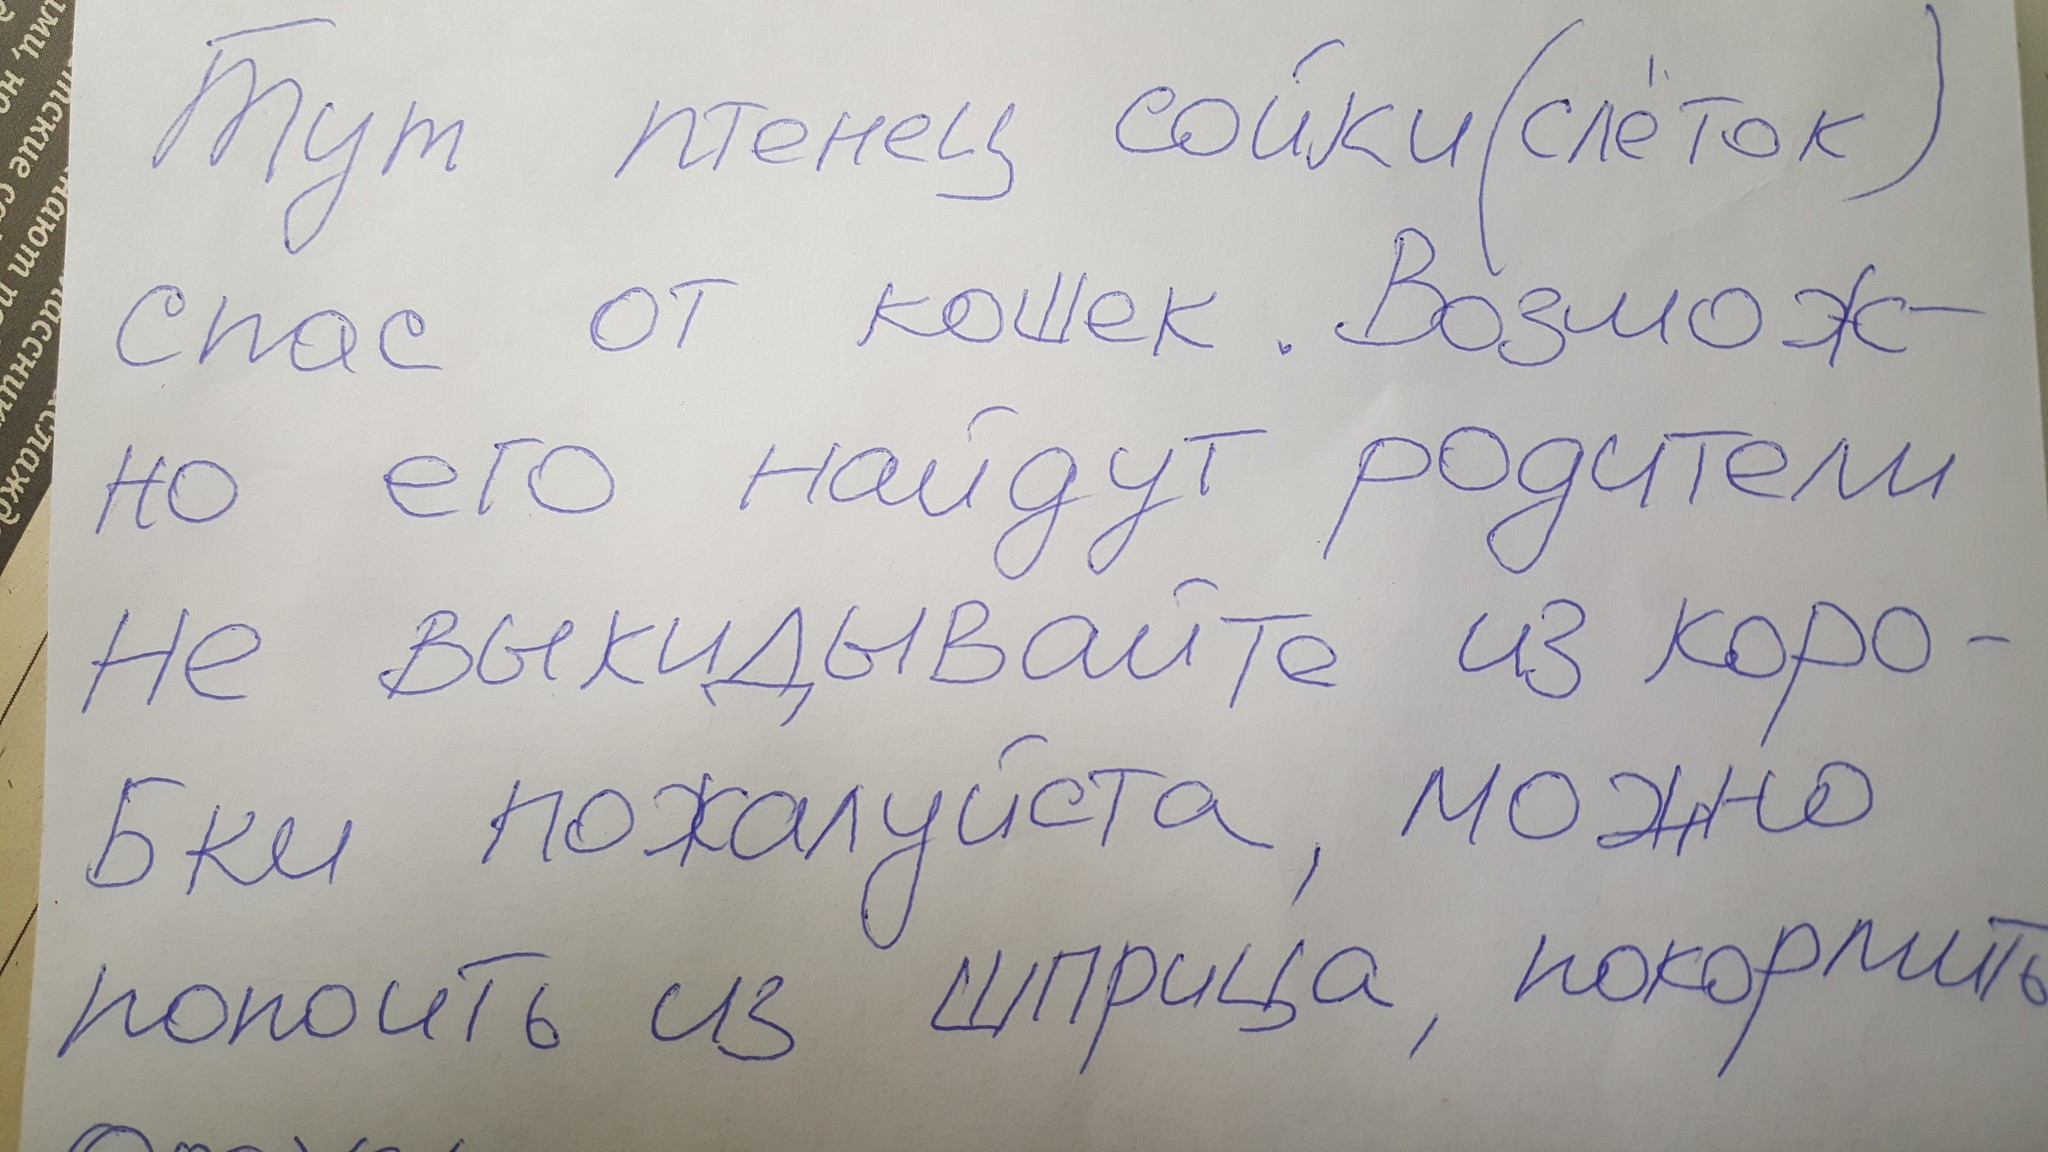 Тут птенец сойки (слёток)
спас от кошек. Возмож-
но его найдут родители
Не выкидывайте из коро-
бки пожалуйста, можно
попоить из шприца, покормить